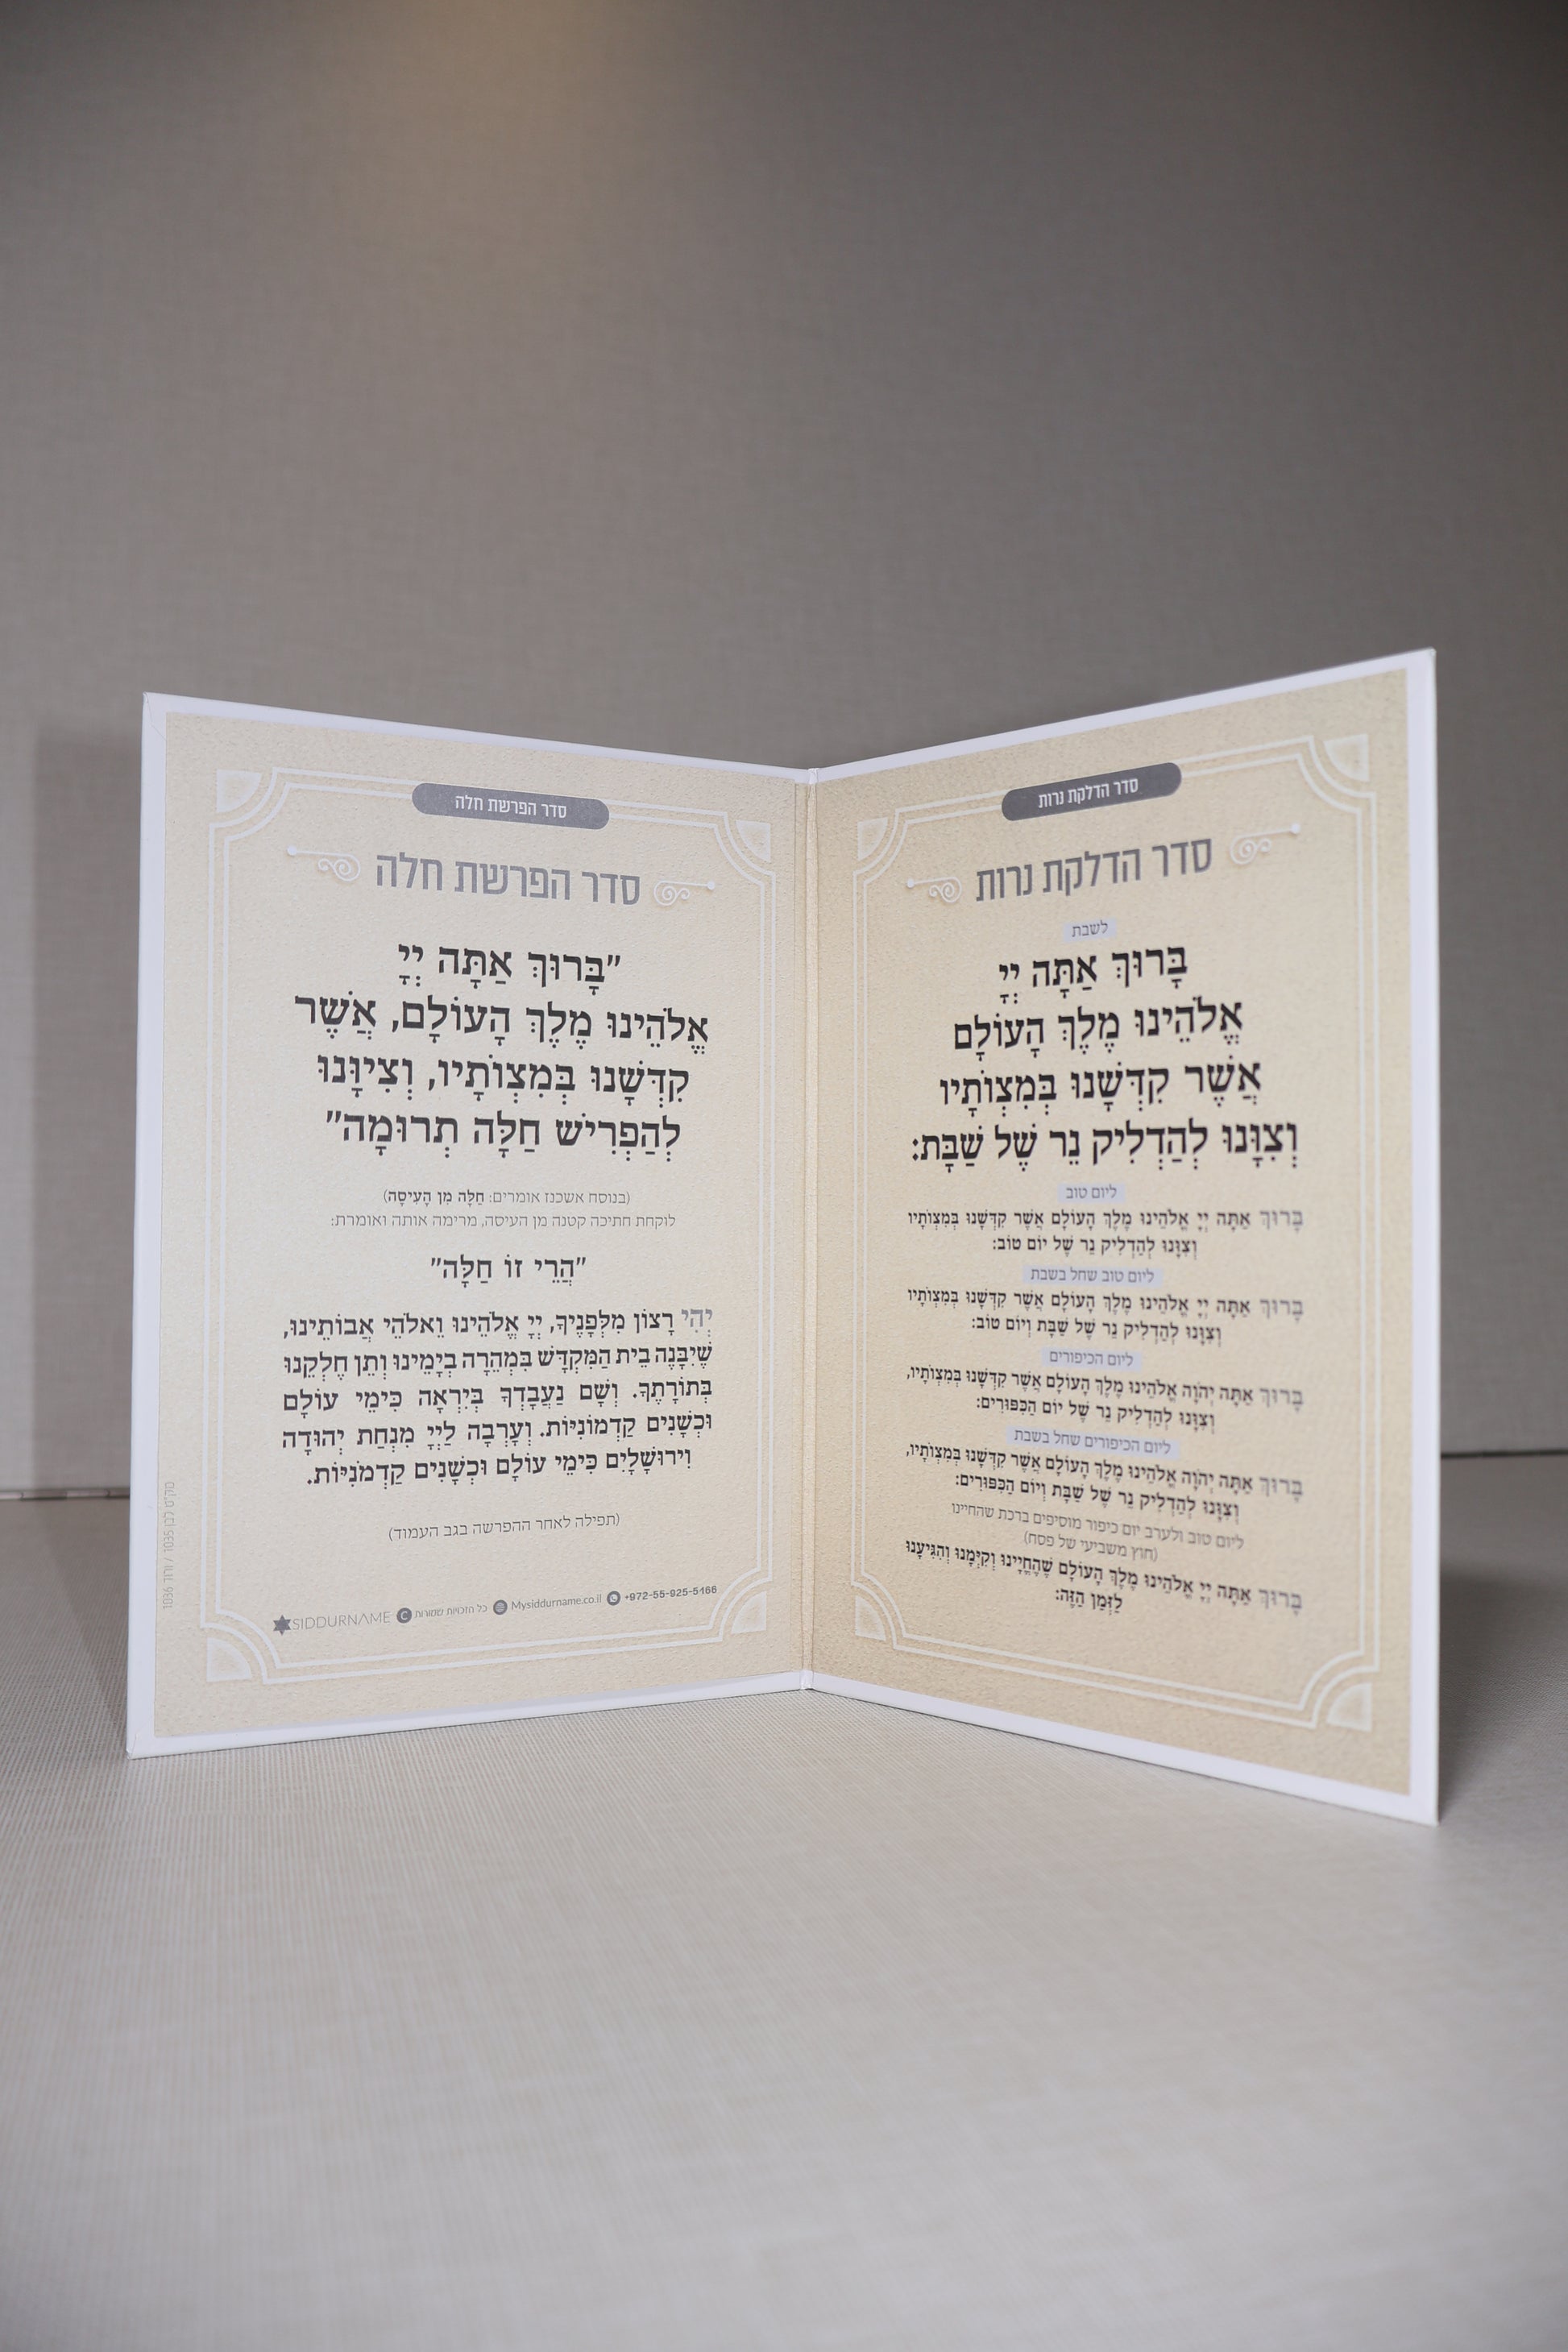 סדר הדלקת נרות
סדר הדלקת נרות
לשבת
בָּרוּךְ אַתָּה יְיָ
אֱלֹהֵינוּ מֶלֶךְ הָעוֹלָם
אֲשֶׁר קִדְּשָׁנוּ בְּמִצְוֹתָיו
וְצִוָּנוּ לְהַדְלִיק נֵר שֶׁל שַׁבָּת:
ליום טוב
בָּרוּךְ אַתָּה יְיָ אֱלֹהֵינוּ מֶלֶךְ הָעוֹלָם אֲשֶׁר קִדְּשָׁנוּ בְּמִצְוֹתָיו
וְצִוָּנוּ לְהַדְלִיק נֵר שֶׁל יוֹם טוֹב:
ליום טוב שחל בשבת
בָּרוּךְ אַתָּה יְיָ אֱלֹהֵינוּ מֶלֶךְ הָעוֹלָם אֲשֶׁר קִדְּשָׁנוּ בְּמִצְוֹתָיו
וְצִוָּנוּ לְהַדְלִיק נֵר שֶׁל שַׁבָּת וְיוֹם טוֹב:
ליום הכיפורים
בָּרוּךְ אַתָּה יְהֹוָה אֱלֹהֵינוּ מֶלֶךְ הָעוֹלָם אֲשֶׁר קִדְּשָׁנוּ בְּמִצְוֹתָיו,
וְצִוָּנוּ לְהַדְלִיק נֵר שֶׁל יוֹם הַכִּפּוּרִים:
ליום הכיפורים שחל בשבת
בָּרוּךְ אַתָּה יְהֹוָה אֱלֹהֵינוּ מֶלֶךְ הָעוֹלָם אֲשֶׁר קִדְּשָׁנוּ בְּמִצְוֹתָיו,
וְצִוָּנוּ לְהַדְלִיק נֵר שֶׁל שַׁבָּת וְיוֹם הַכִּפּוּרִים:
ליום טוב ולערב יום כיפור מוסיפים ברכת שהחיינו
(חוץ משביעי של פסח)
בָּרוּךְ אַתָּה יְיָ אֱלֹהֵינוּ מֶלֶךְ הָעוֹלָם שֶׁהֶחֱיָינוּ וְקִיְּמָנוּ וְהִגִּיעָנוּ
לַזְּמַן הַזֶּה:
סדר הפרשת חלה
סדר הפרשת חלה
"בָּרוּךְ אַתָּה יְיָ
אֱלֹהֵינוּ מֶלֶךְ הָעוֹלָם, אֲשֶׁר
קִדְּשָׁנוּ בְּמִצְוֹתָיו, וְצִיוָּנוּ
לְהַפְרִישׁ חַלָּה תְרוּמָה"
(בנוסח אשכנז אומרים: חַלָּה מִן הָעִיסָה)
לוקחת חתיכה קטנה מן העיסה, מרימה אותה ואומרת:
"הֲרֵי זוֹ חַלָּה"
יְהִי רָצוֹן מִלְּפָנֶיךָ, יְיָ אֱלֹהֵינוּ וֵאלֹהֵי אֲבוֹתֵינוּ,
שֶׁיִּבָּנֶה בֵּית הַמִּקְדָּשׁ בִּמְהֵרָה בְיָמֵינוּ וְתֵן חֶלְקֵנוּ
בְּתוֹרָתֶךָ. וְשָׁם נַעֲבָדְךָ בְּיִרְאָה כִּימֵי עוֹלָם
וּכְשָׁנִים קַדְמוֹנִיּוֹת. וְעָרְבָה לַיְיָ מִנְחַת יְהוּדָה
וִירוּשָׁלָיִם כִּימֵי עוֹלָם וּכְשָׁנִים קַדְמֹנִיּוֹת.
(תפילה לאחר ההפרשה בגב העמוד)
SIDDURNAME כל הזכויות שמורות Mysiddurname.co.il +972-55-925-5166
מק"ט לבן 1035 / ורוד 1036